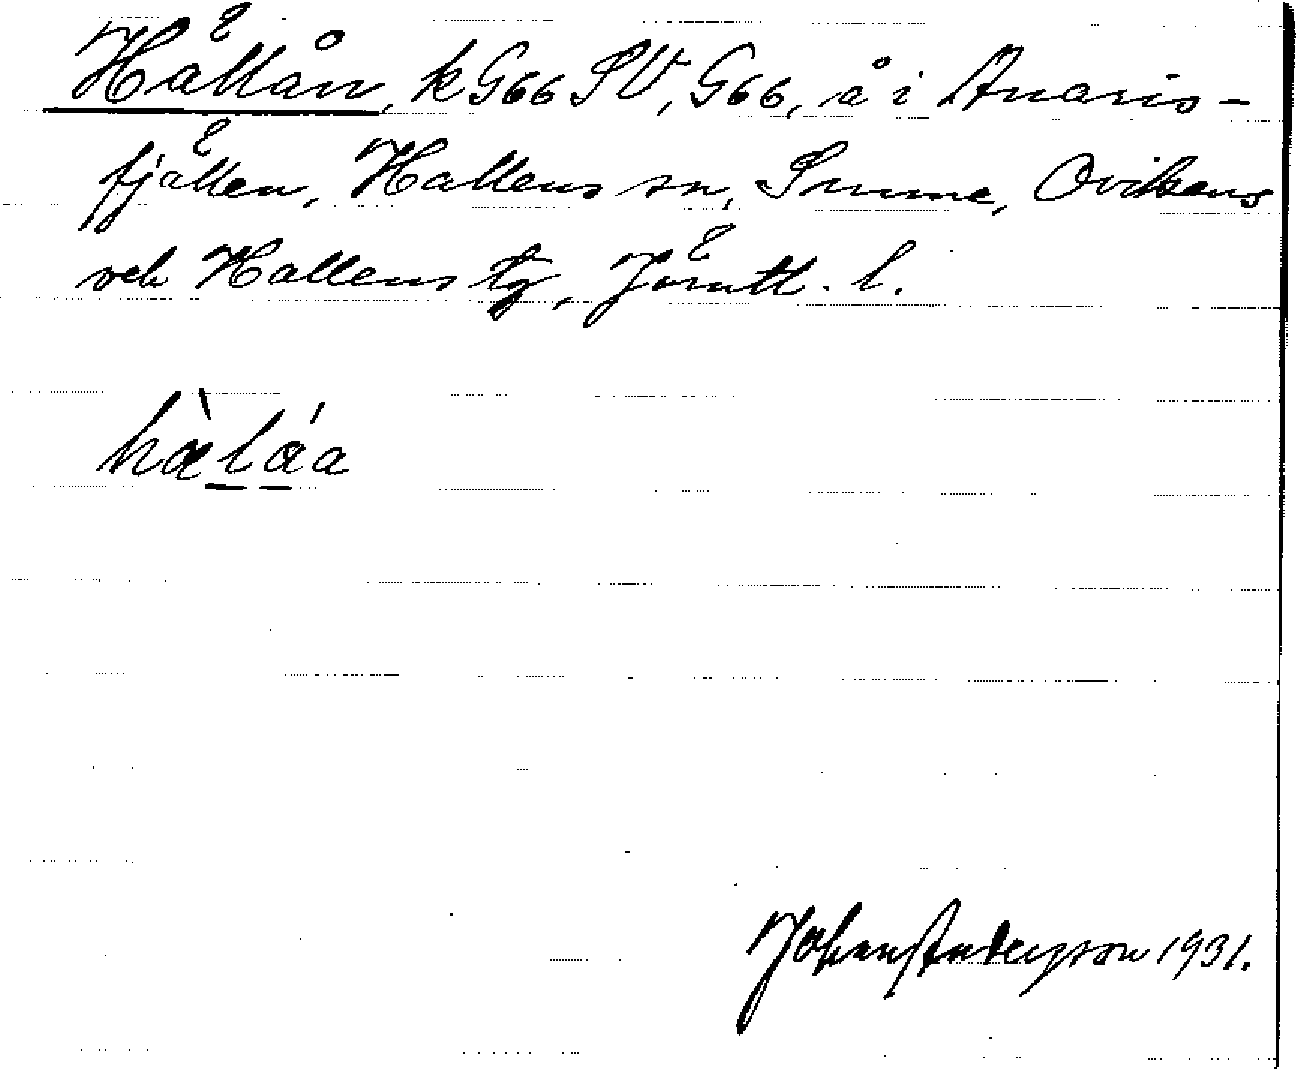 Hällån, k G66 SV, G66, å i Anaris-
fjällen, Hallens sn, Sunne, Ovikens
och Hallens tg, Jämtl. l.
hæ̀láa
Johan Andersson 1931.